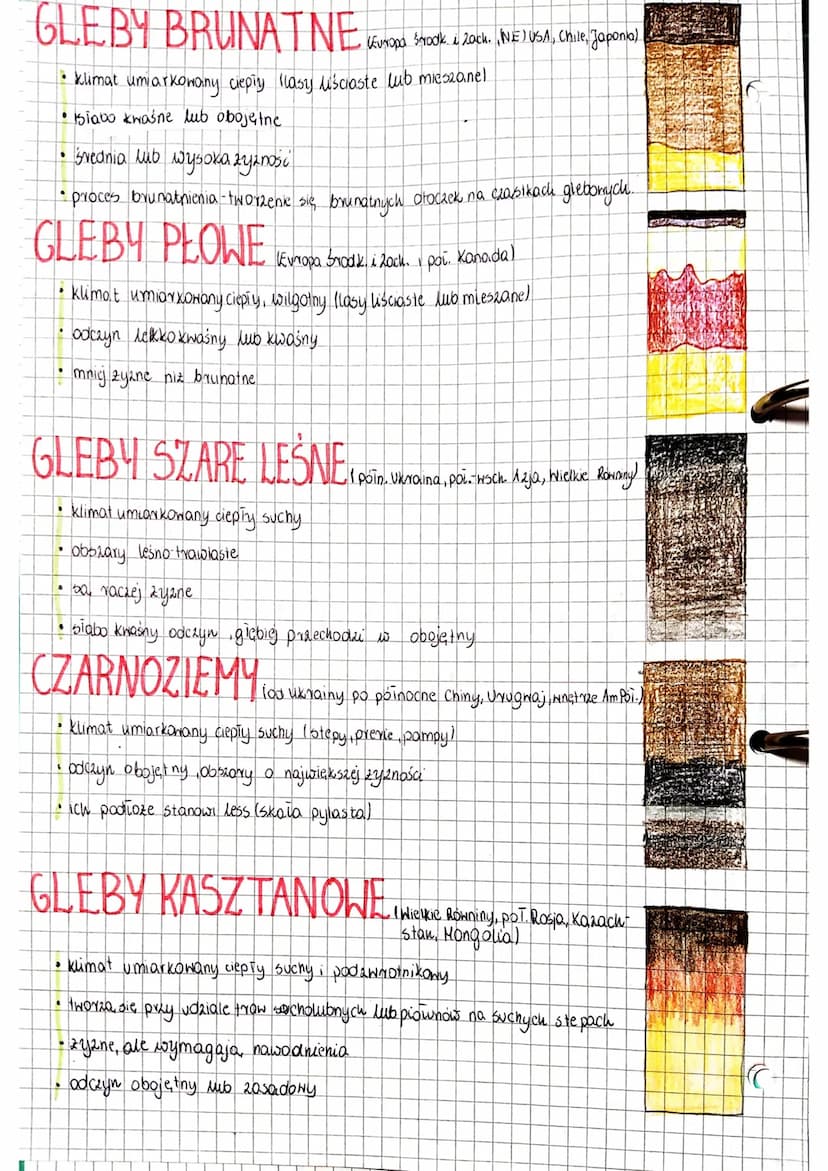 GLEBY BRUNATNE (Europa środk. i zach., (NE) USA, Chile, Japonia)
• klimat umiarkowany ciepły (lasy liściaste lub mieszane)
• słabo kwaśne lub obojętne
• średnia lub wysoka żyzność
• proces brunatnienia - tworzenie się brunatnych otoczek na cząstkach glebowych.
GLEBY PŁOWE (Europa środk. i zach. i poł. Kanada)
• klimat umiarkowany ciepły, wilgotny (lasy liściaste lub mieszane)
• odczyn lekko kwaśny lub kwaśny
• mniej żyzne niż brunatne
GLEBY SZARE LEŚNE (półn. Ukraina, poł.-wsch Azja, Wielkie Równiny)
• klimat umiarkowany ciepły suchy
• obszary leśno-trawiaste
• są raczej żyzne
• słabo kwaśny odczyn, głębiej przechodzi w obojętny
CZARNOZIEMY (od Ukrainy po północne Chiny, Urugwaj, wnętrze Am Poł.)
• klimat umiarkowany ciepły suchy (stepy, prerie, pampy)
• odczyn obojętny, obszary o największej żyzności
• ich podłoże stanowi less (skała pylasta)
GLEBY KASZTANOWE (Wielkie Równiny, poł. Rosja, Kazach-
stan, Mongolia)
• klimat umiarkowany ciepły suchy i podzwrotnikowy
• tworzą się przy udziale traw sucholubnych lub piołunów na suchych stepach
• żyzne, ale wymagają nawodnienia
• odczyn obojętny lub zasadowy